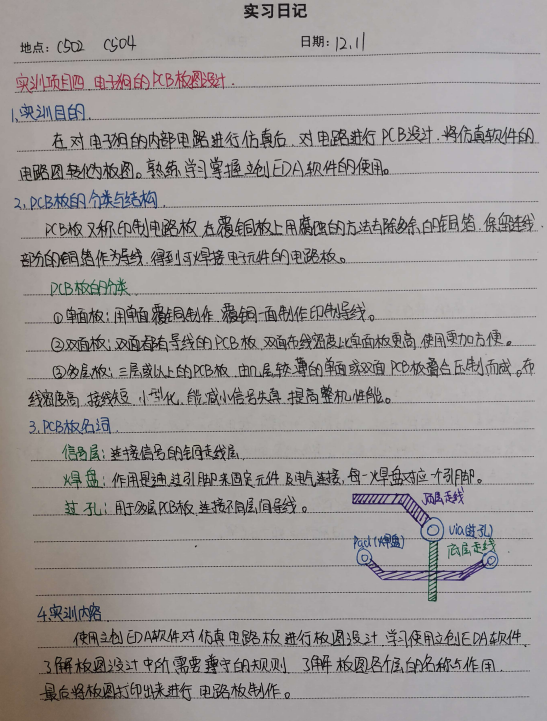 实习日记
地点: C502 C504 日期: 12.11
实训项目四 电子狗的PCB板图设计.
1.实训目的.
在对电子狗的内部电路进行仿真后,对电路进行PCB设计.将仿真软件的
电路图转化为板图。熟练学习掌握立创EDA软件的使用。
2.PCB板的分类与结构
PCB板又称印制电路板,在覆铜板上用腐蚀的方法去除多余的铜箔.保留连线
部分的铜箔作为导线,得到可焊接电子元件的电路板。
PCB板的分类
①单面板:用单面覆铜制作,覆铜一面制作印制导线。
②双面板:双面都有导线的PCB板,双面布线密度比单面板更高,使用更加方便。
③多层板:三层或以上的PCB板,由几层较薄的单面或双面PCB板叠合压制而成。布
线密度高,接线短,小型化,能减小信号失真,提高整机性能。
3.PCB板名词
信号层:连接信号的铜走线层.
焊盘:作用是通过引脚来固定元件及电气连接,每一焊盘对应一个引脚。
过孔:用于多层PCB板,连接不同层间导线。
顶层走线
Pad(焊盘) via(过孔)
底层走线
4.实训内容
使用立创EDA软件对仿真电路板进行板图设计,学习使用立创EDA软件,
了解板图设计中所需要遵守的规则,了解板图各个层的名称与作用.
最后将板图打印出来进行电路板制作。